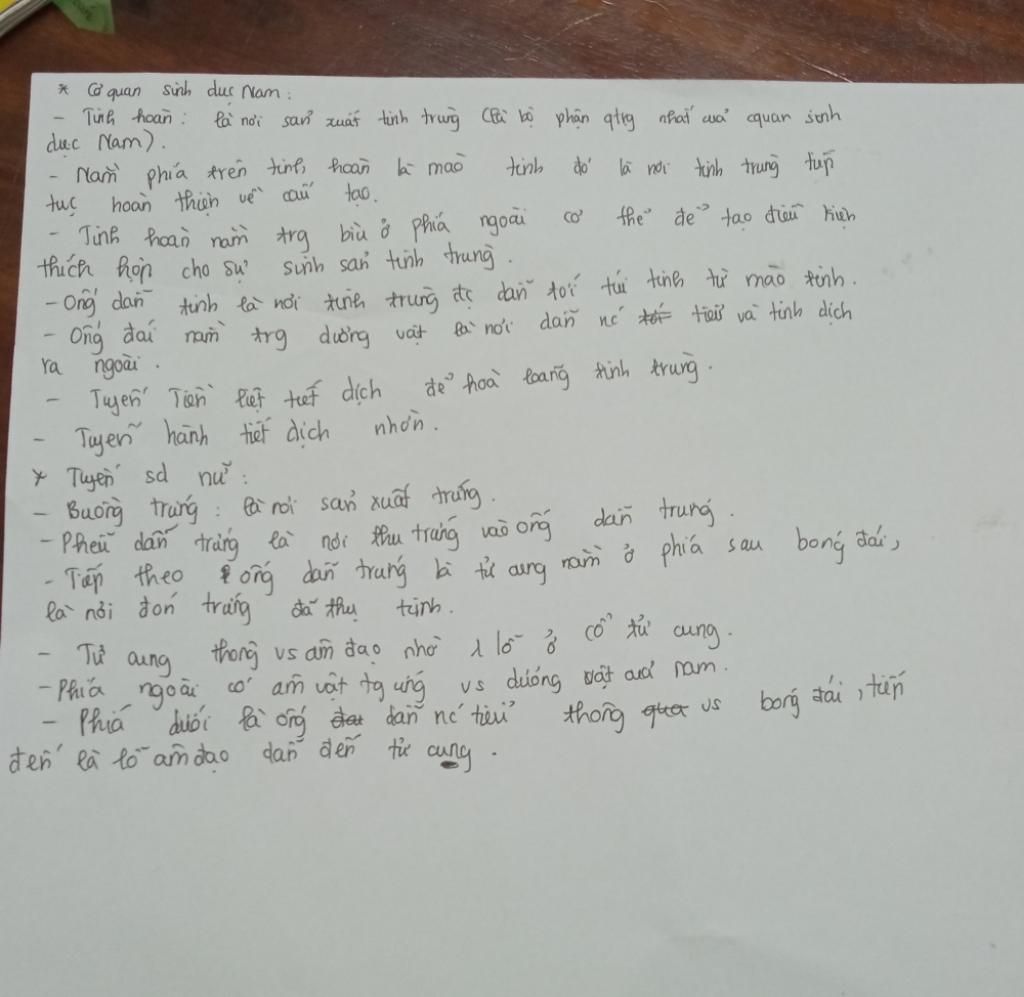 * Cơ quan sinh dục Nam:
- Tinh hoàn: là nơi sản xuất tinh trùng (là bộ phận qtrg nhất của cquan sinh
dục Nam).
- Nằm phía trên tinh hoàn là mào tinh đó là nơi tinh trùng tiếp
tục hoàn thiện về cấu tạo.
- Tinh hoàn nằm trg bìu ở phía ngoài cơ thể để tạo điều kiện
thích hợp cho sự sinh sản tinh trùng.
- Ống dẫn tinh là nơi tinh trùng đc dẫn tới túi tinh từ mào tinh.
- Ống đái nằm trg dương vật là nơi dẫn nc tới tiểu và tinh dịch
ra ngoài.
- Tuyến Tiền liệt tiết dịch để hoà loãng tinh trùng.
- Tuyến hành tiết dịch nhờn.
* Tuyến sd nữ:
- Buồng trứng: là nơi sản xuất trứng.
- Phễu dẫn trứng là nơi thu trứng vào ống dẫn trứng.
- Tiếp theo ống dẫn trứng là tử cung nằm ở phía sau bóng đái,
là nơi đón trứng đã thụ tinh.
- Tử cung thông vs âm đạo nhờ 1 lỗ ở cổ tử cung.
- Phía ngoài có âm vật tg ứng vs dương vật của nam.
- Phía dưới là ống dẫn nc tiểu thông qua vs bóng đái, tiếp
đến là lỗ âm đạo dẫn đến tử cung.